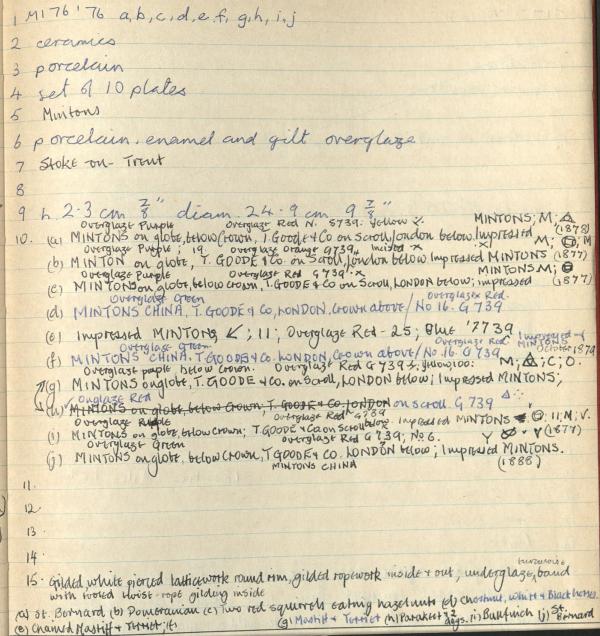 1 M176 '76 a,b,c,d,e,f,g,h,i,j
2 ceramics
3 porcelain
4 set of 10 plates
5 Mintons
6 porcelain, enamel and gilt overglaze
7 Stoke-on-Trent
8
9 h. 2·3 cm 7/8" diam. 24·9 cm. 9 7/8"
Overglaze Purple Overglaze Red N. 5739. Yellow MINTONS; M; △
10. (a) MINTONS on globe, below Crown, T. GOODE & Co on Scroll, London below. Impressed (1878)
Overglaze Purple; 19. Overglaze Orange G739. Incised X M;
(b) MINTON on globe, T. GOODE & Co. on Scroll, London below Impressed MINTONS (1877)
Overglaze Purple Overglaze Red G 739. X MINTONS M;
(c) MINTONS on globe, below Crown, T. GOODE & Co on Scroll, LONDON below; impressed (1877)
Overglaze Green Overglaze Red.
(d) MINTONS CHINA, T. GOODE & Co, LONDON, Crown above / No 16. G 739
(e) Impressed MINTONS ↙; 11; Overglaze Red - 25; Blue '7739
Overglaze Green. Overglaze Red October 1879
(f) MINTONS CHINA. T. GOODE & Co, LONDON, Crown above / No 16. G 739
Overglaze purple below Crown. Overglaze Red G 739 M; △; C; O.
(g) MINTONS on globe, T. GOODE & Co. on Scroll, LONDON below; Impressed MINTONS;
Onglaze Red
(h) MINTONS on globe, below Crown, T. GOODE & Co, LONDON on scroll. G 739
Overglaze Purple Overglaze Red G 739 Impressed MINTONS 11; M; V.
(i) MINTONS on globe, below Crown; T. GOODE & Co on Scroll below. (1877)
Overglaze Green Overglaze Red G 739; No 6. Y
(j) MINTONS on globe, below Crown, T. GOODE & Co. LONDON below; Impressed MINTONS.
MINTONS CHINA (1888)
11.
12.
13.
14.
15. Gilded, white pierced latticework round rim, gilded ropework inside & out, underglaze, turquoise band
with twist-rope gilding inside
(a) St. Bernard (b) Pomeranian (c) Two red squirrels eating hazelnuts (d) Chestnut, White & Black horses.
(e) Chained Mastiff & Terrier; (f) (g) Mastiff & Terrier (h) Parakeet (i) Bullfinch (j) St. Bernard